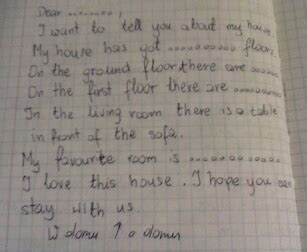 Dear ........,
I want to tell you about my house.
My house has got .......... floors.
On the ground floor there are ......
On the first floor there are .........
In the living room there is a table
in front of the sofa.
My favourite room is .............
I love this house. I hope you can
stay with us.
W domu o domu